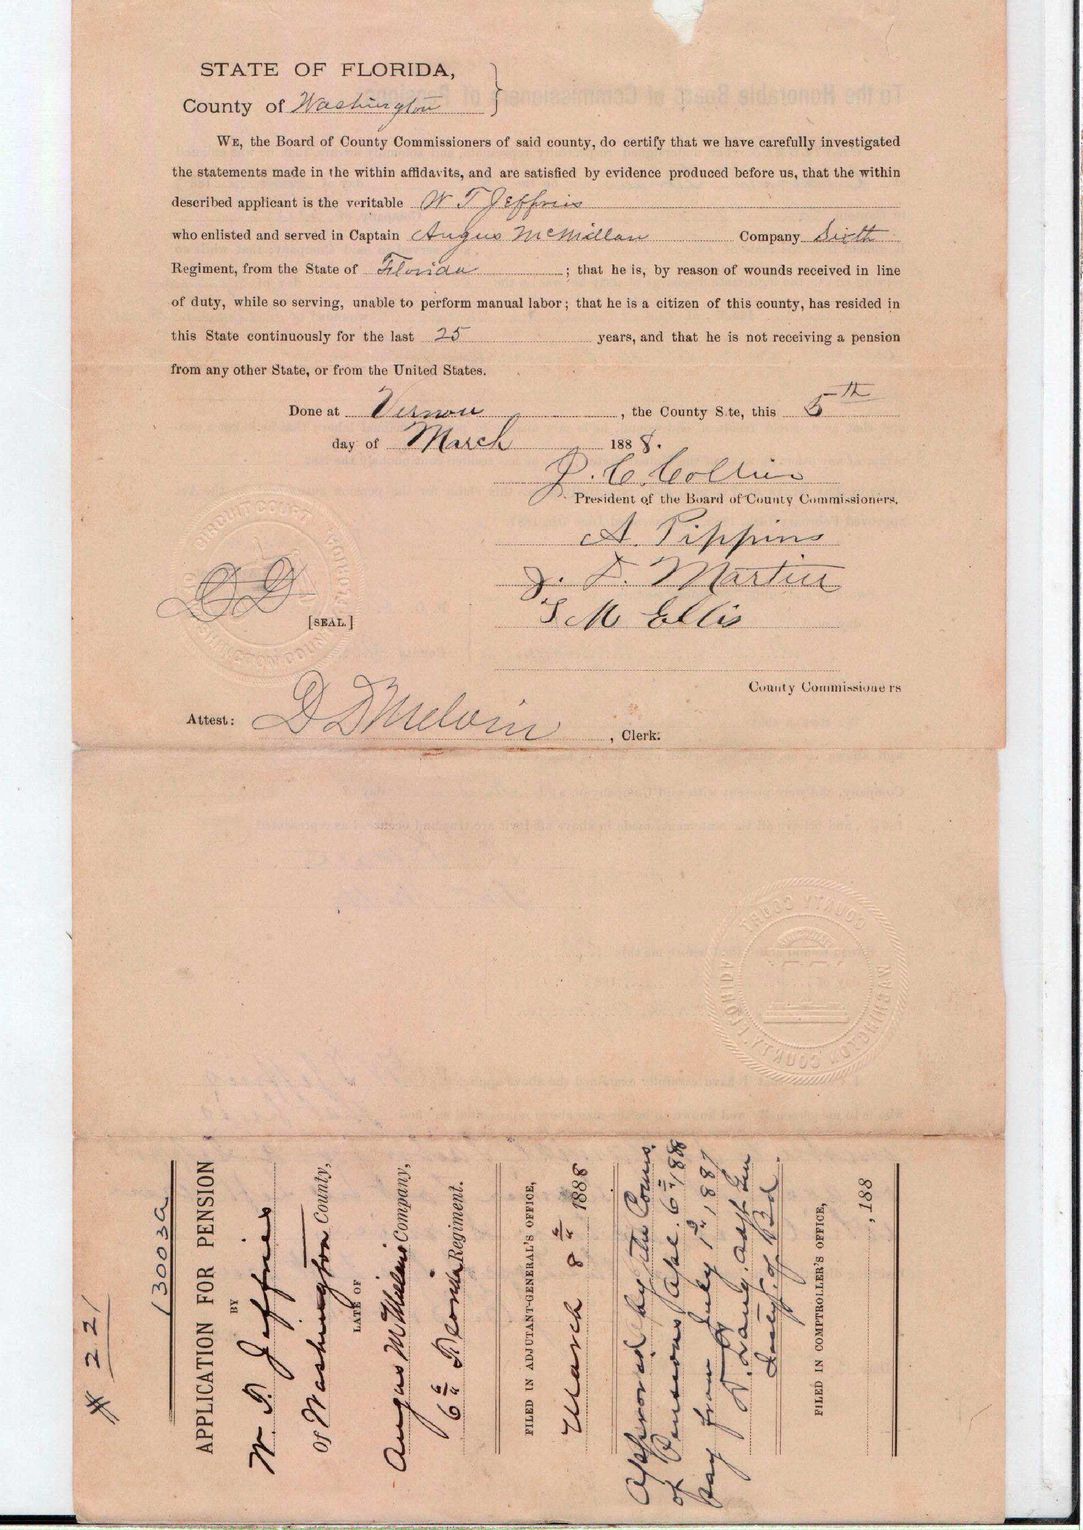 STATE OF FLORIDA,
County of Washington
WE, the Board of County Commissioners of said county, do certify that we have carefully investigated
the statements made in the within affidavits, and are satisfied by evidence produced before us, that the within
described applicant is the veritable W T Jeffries
who enlisted and served in Captain Angus McMillan Company Sixth
Regiment, from the State of Florida ; that he is, by reason of wounds received in line
of duty, while so serving, unable to perform manual labor; that he is a citizen of this county, has resided in
this State continuously for the last 25 years, and that he is not receiving a pension
from any other State, or from the United States.
Done at Vernon , the County Site, this 5th
day of March 1888.
J. C. Collins
President of the Board of County Commissioners.
A. Pippins
J. D. Martin
T M Ellis
[SEAL.]
CIRCUIT COURT FLORIDA
WASHINGTON COUNTY
DD
County Commissioners
Attest: D D Melvin , Clerk.
COUNTY COURT
WASHINGTON COUNTY, FLORIDA
# 221
13003a
APPLICATION FOR PENSION
BY
W. T. Jeffries
Of Washington County,
LATE OF
Angus McMillan Company,
6th Florida Regiment.
FILED IN ADJUTANT-GENERAL'S OFFICE,
March 8th 1888
Approved by the Comrs.
of Pensions Apl. 6th, 1888
pay from July 1st, 1887
D. Lang. Adjt Gen
Secty. of Bd.
FILED IN COMPTROLLER'S OFFICE,
, 188